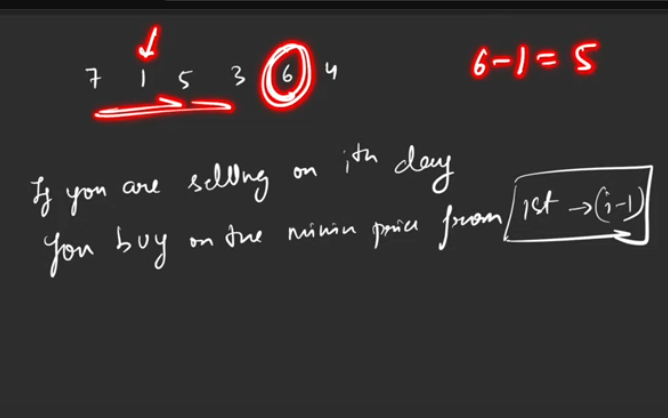 7 1 5 3 6 4
6-1=5
If you are selling on ith day
You buy on the minim price from 1st → (i-1)